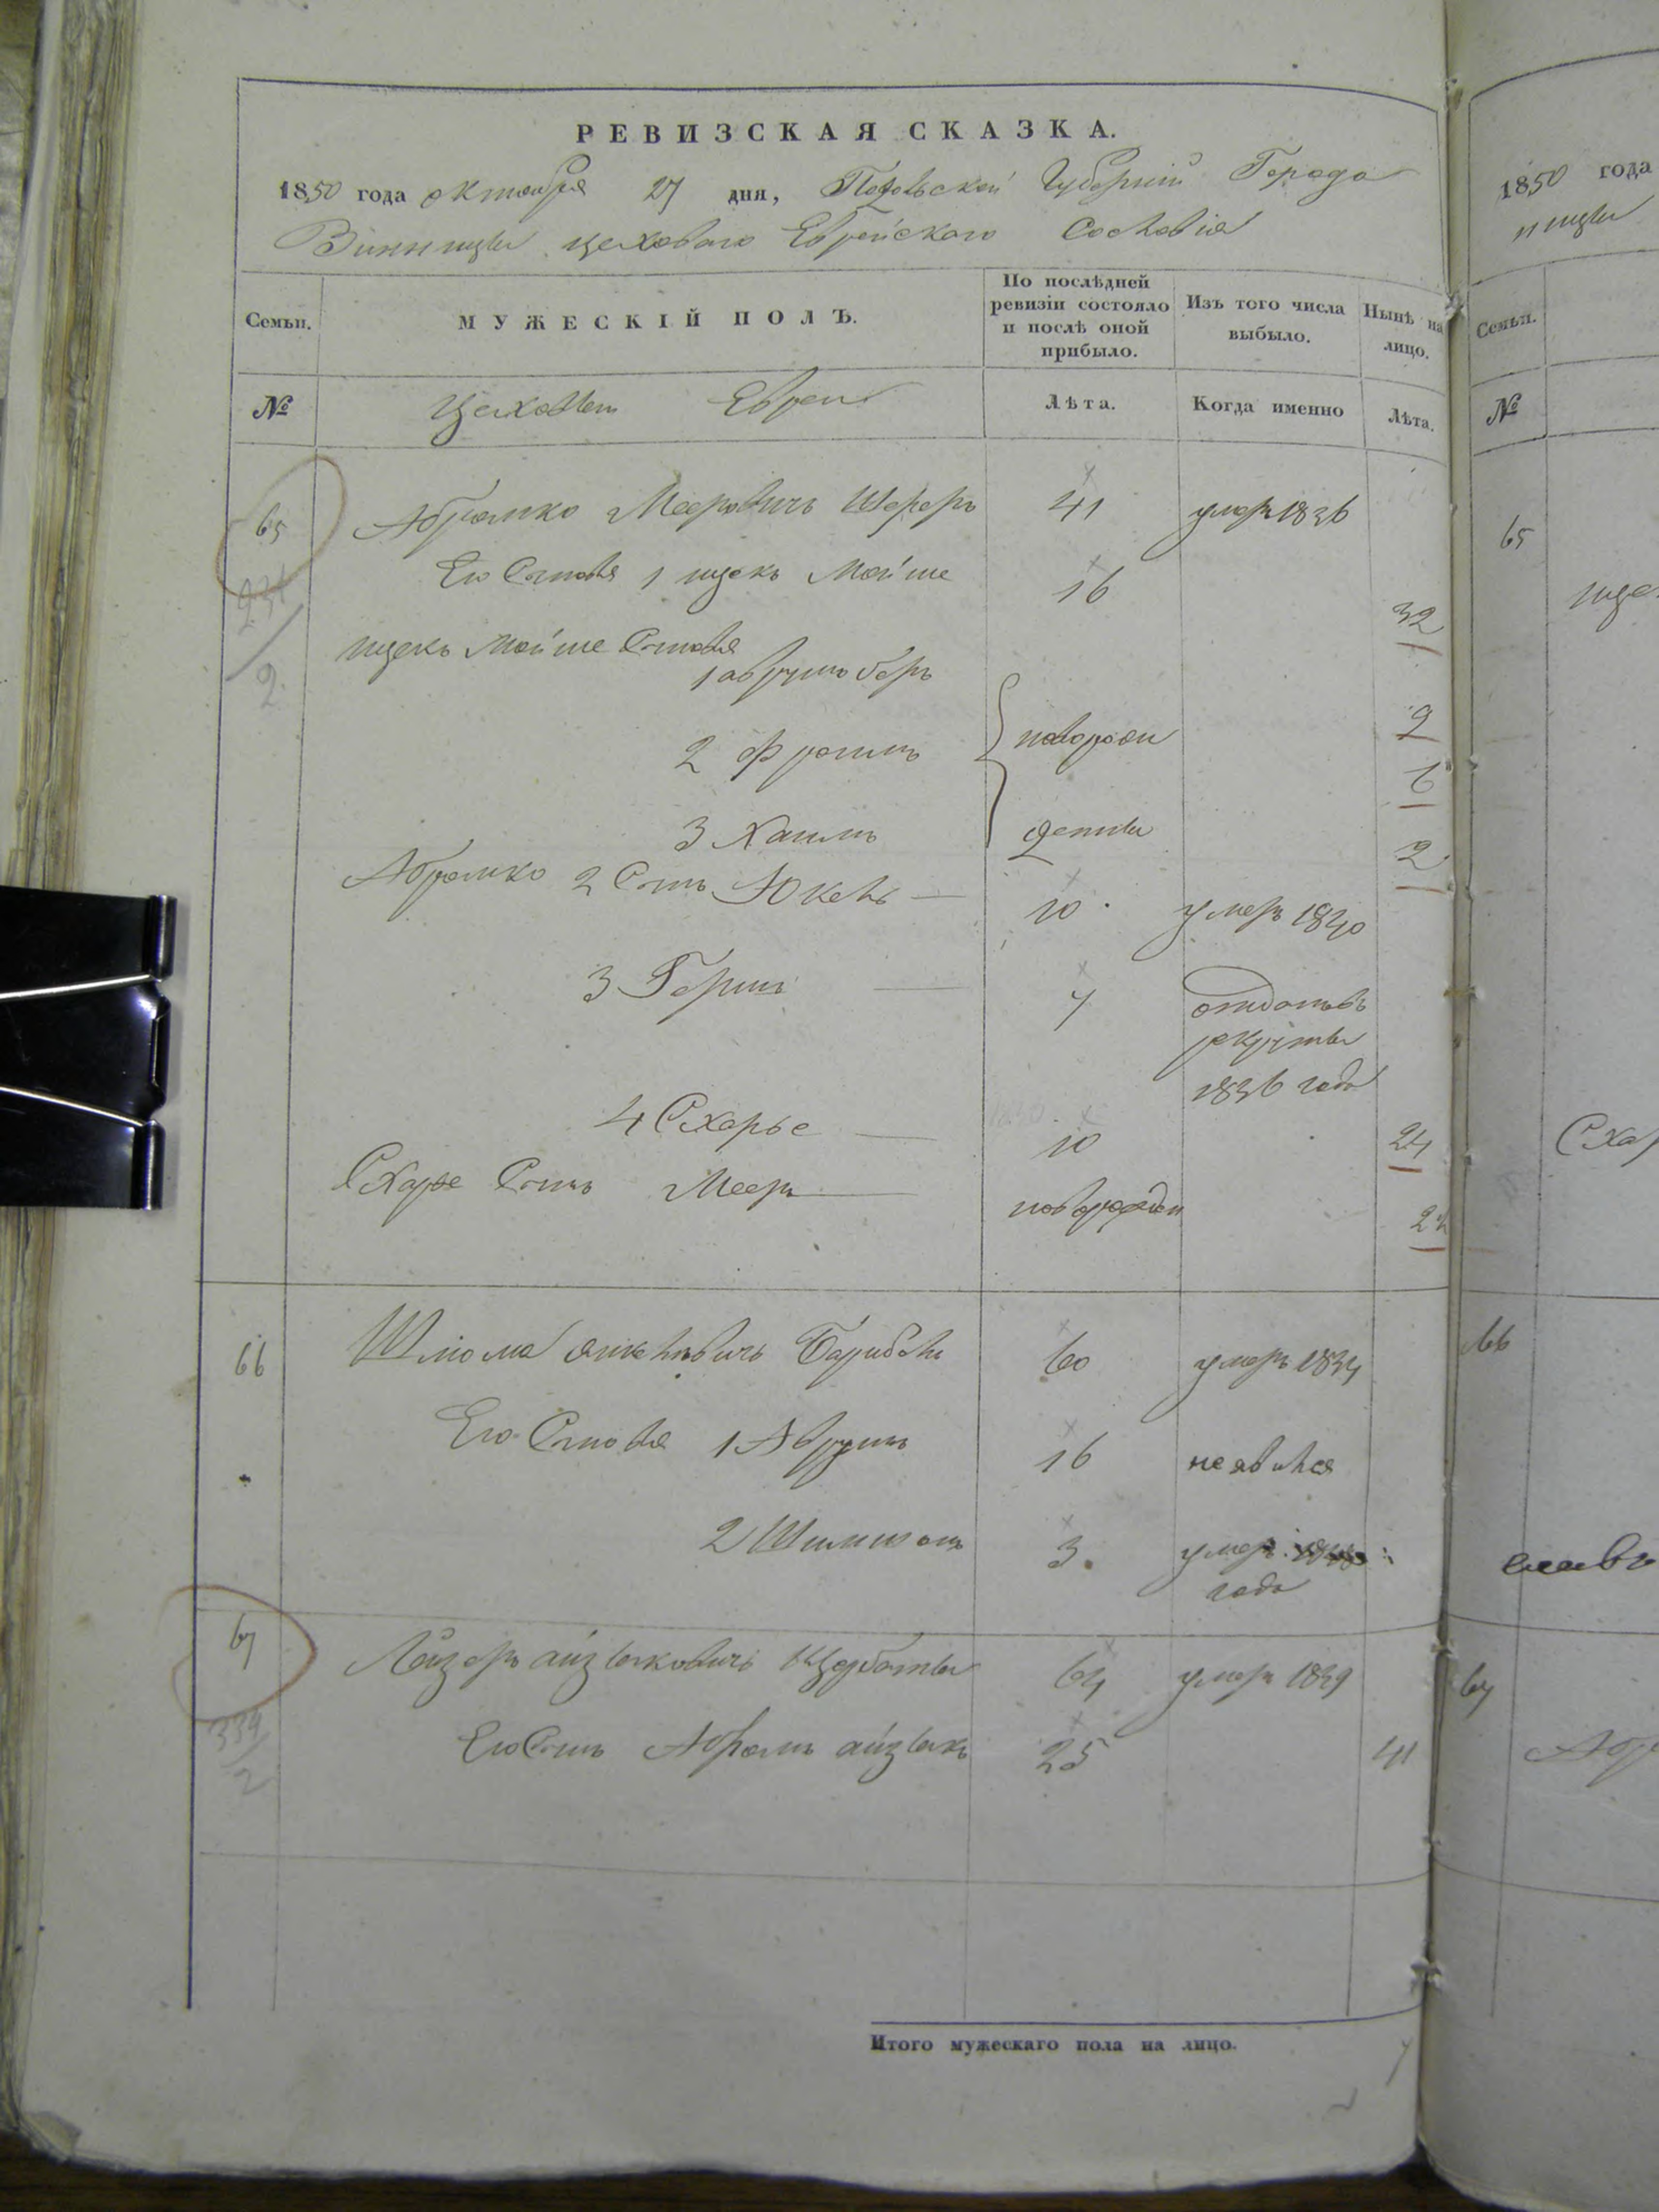 РЕВИЗСКАЯ СКАЗКА.
1850 года октября 27 дня, Подольской Губернии Города
Винницы цеховаго Еврейскаго Сословія
Семьи.
МУЖЕСКІЙ ПОЛЪ.
По послѣдней ревизіи состояло и послѣ оной прибыло.
Изъ того числа выбыло.
Нынѣ на лицо.
№ Цеховые Евреи Лѣта. Когда именно Лѣта.
65 Абрамко Мееровичъ Шереръ 41 умеръ 1836
Его Сыновья 1 ицекъ Мойше 16 32
ицекъ Мойше Сыновья
1 аврумъ беръ 9
2 Фроимъ новорож 6
3 Хаимъ дѣти 2
Абрамко 2 Сынъ Юкель 10 умеръ 1840
3 Герш 7 отданъ въ
рекруты
1836 года
4 Схарье 10 24
Схарье Сынъ Мееръ новорожден
66 Шліома Янкелевичъ 60 умеръ 1834
Его Сыновья 1 Аврумъ 16 не явился
2 Шимшонъ 3. умеръ
года
67 Лейзеръ айзыковичъ Щербаты 64 умеръ 1839
Его Сынъ Абрамъ айзыкъ 25 41
334
2
Итого мужескаго пола на лицо.
1850 года
ницы
Семьи.
№
65
ицe
Сха
66
67
Абр